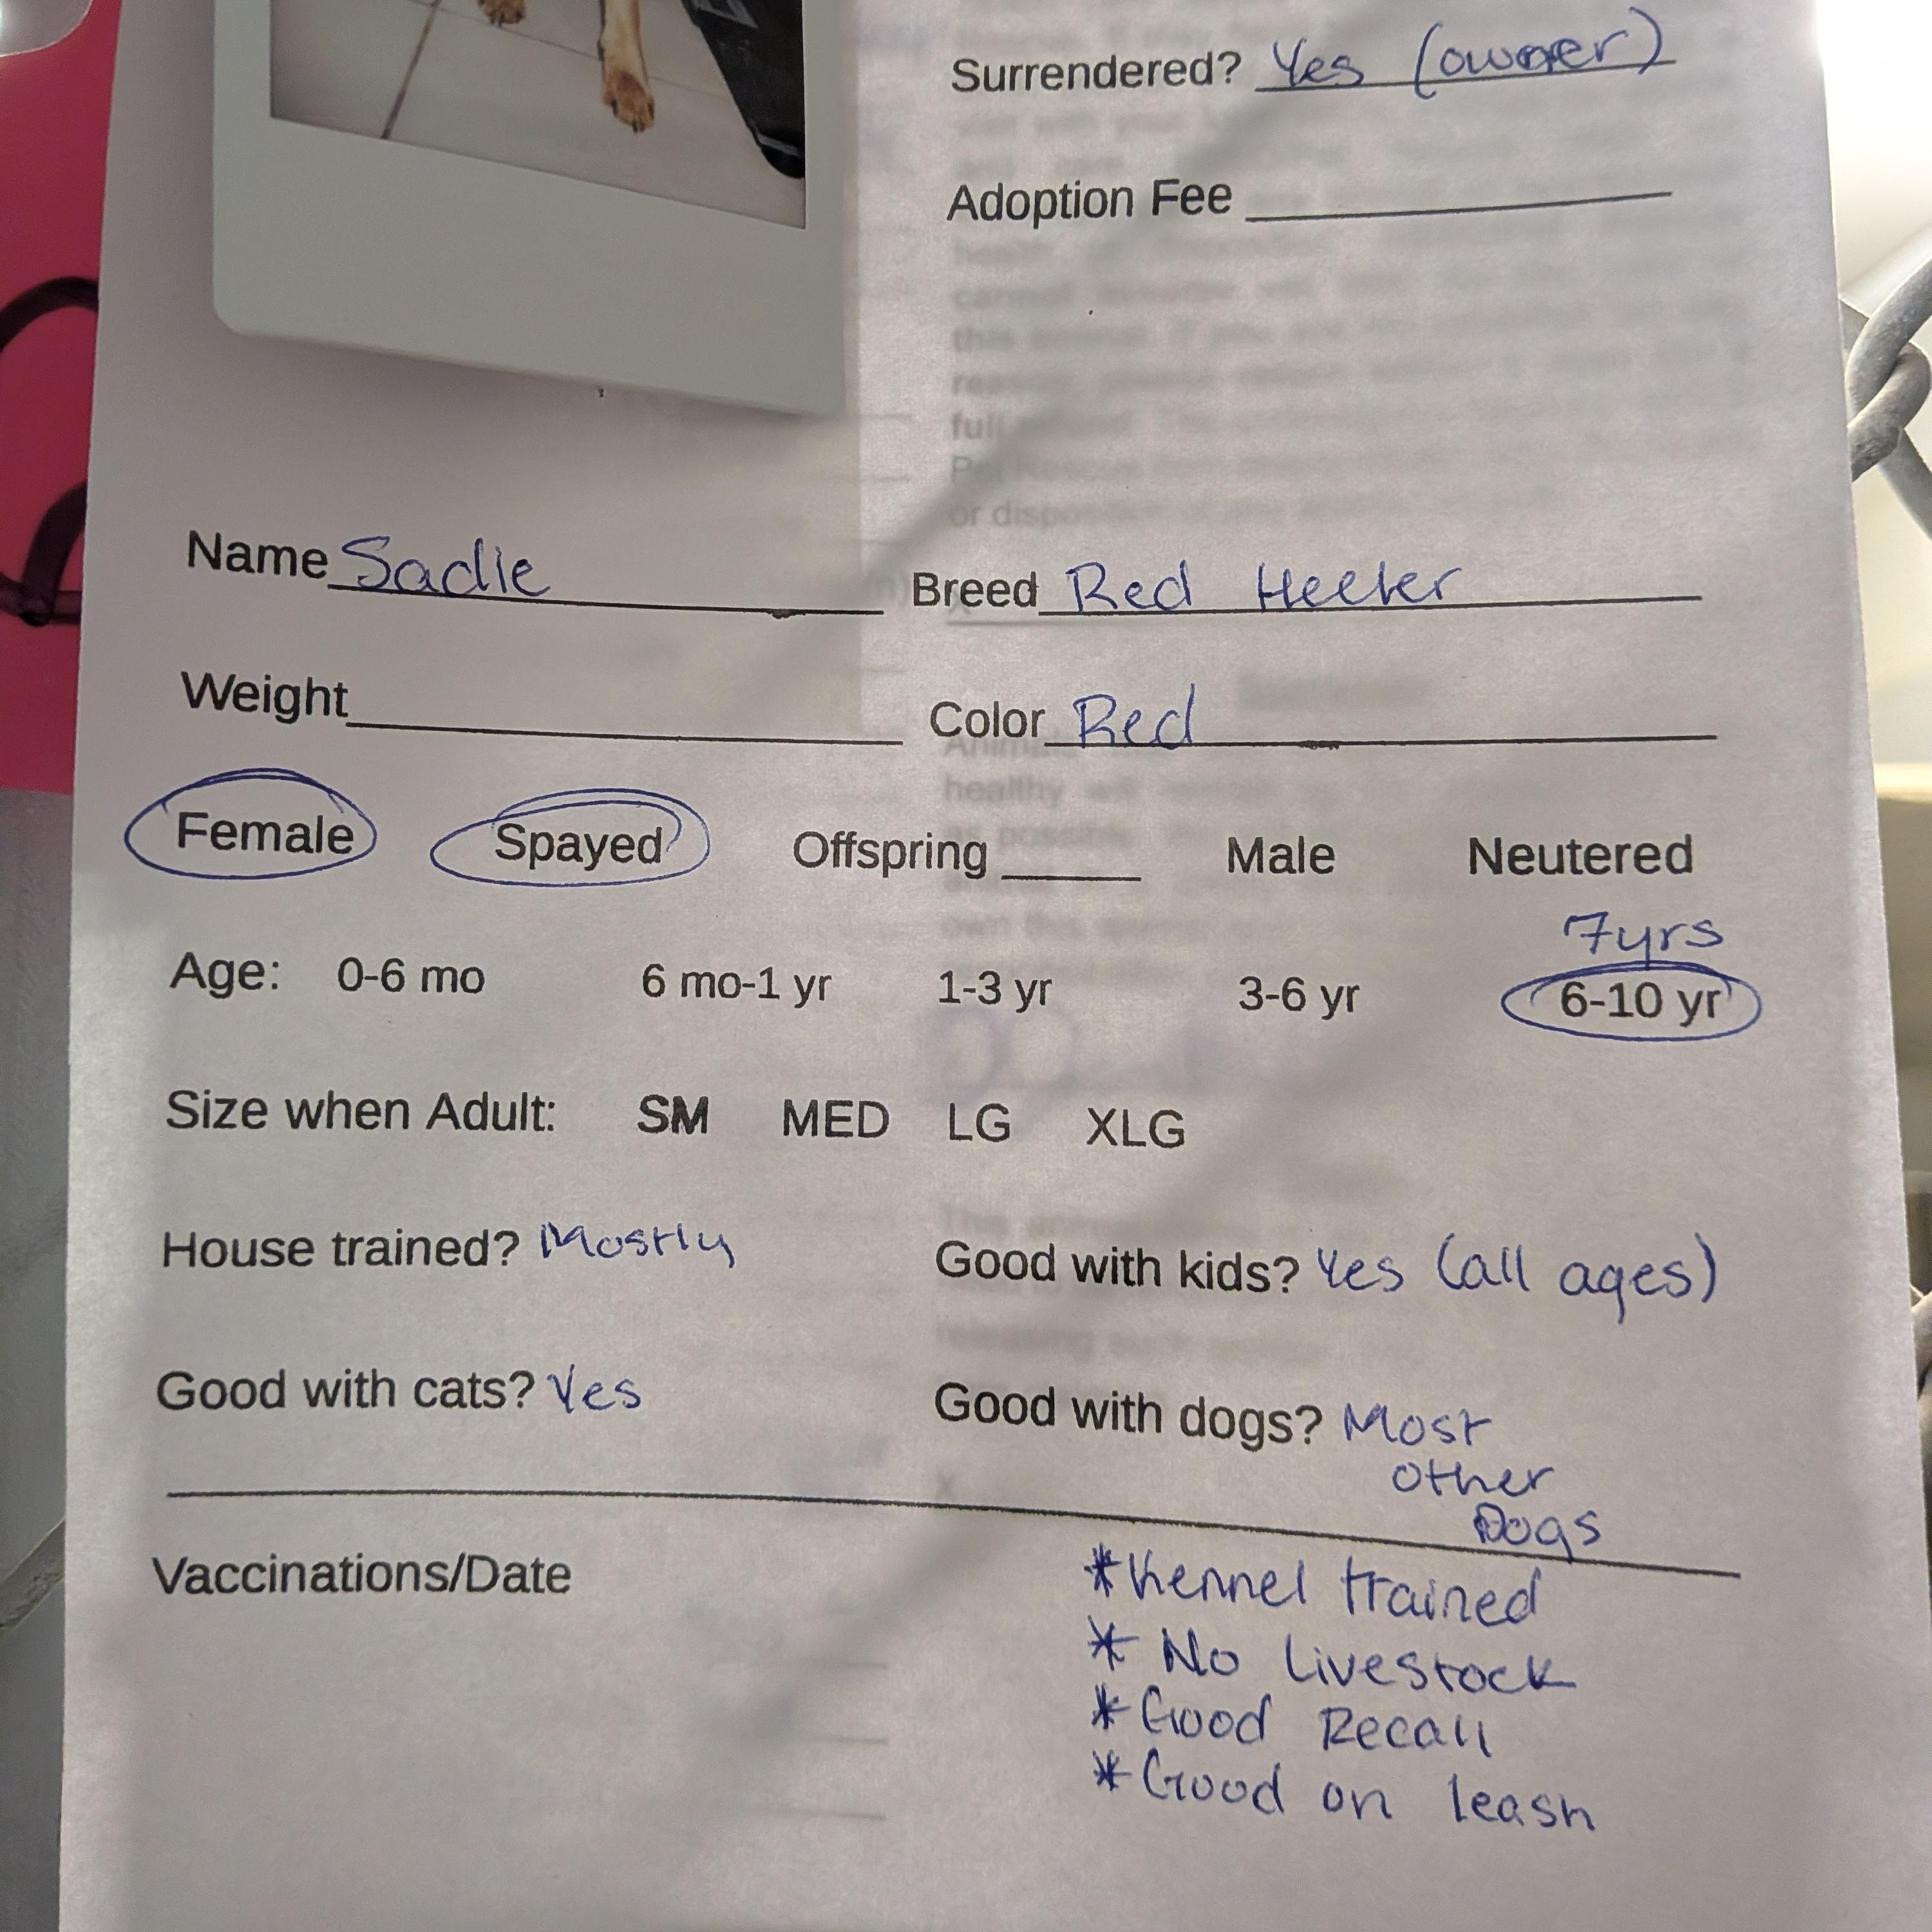 Surrendered? Yes (owner)
Adoption Fee
Name Sadie Breed Red Heeler
Weight Color Red
Female Spayed Offspring Male Neutered
7yrs
Age: 0-6 mo 6 mo-1 yr 1-3 yr 3-6 yr 6-10 yr
Size when Adult: SM MED LG XLG
House trained? Mostly Good with kids? Yes (all ages)
Good with cats? Yes Good with dogs? Most
other
Dogs
Vaccinations/Date
*Kennel trained
* No Livestock
*Good Recall
*Good on leash